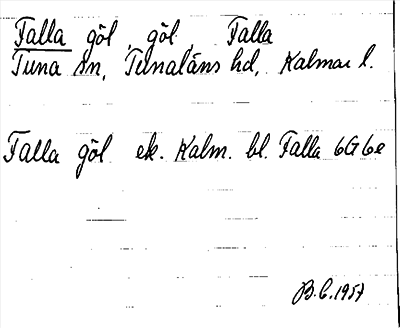 Falla göl, göl, Falla
Tuna sn, Tunaläns hd, Kalmar l.
Falla göl ek. Kalm. bl. Falla 6G6e
B.C. 1957